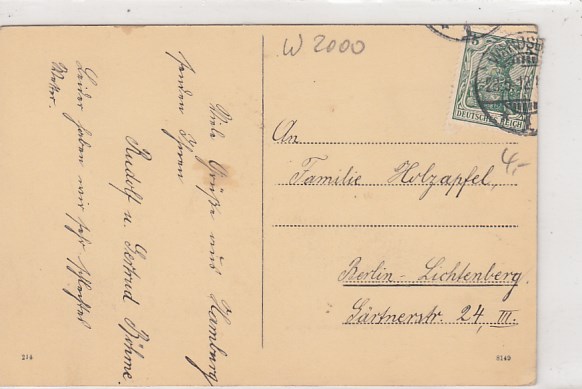 W 2000
WANDSB
DEUTSCHES REICH
4,-
An
Familie Holzapfel,
Berlin-Lichtenberg.
Gärtnerstr. 24, III.
Viele Grüße aus Hamburg
senden Ihnen
Rudolf u. Gertrud Böhme.
Leider haben wir sehr schlechtes
Wetter.
214
8140